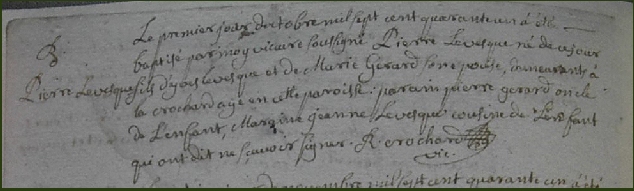 Le premier jour doctobre mil sept cent quarante un à été
B
baptisé par moy vicaire soussigné Pierre Levesque né de ce jour
Pierre Levesque fils d'yves levesque et de Marie Gérard son epouse, demeurants à
la crochardage en cette paroisse. parain pierre gerard oncle
de L'enfant, Maraine jeanne Levesque cousine de L'enfant
qui ont dit ne sçavoir signer. R. crochard
vic.
novembre mil sept cent quarante un à été